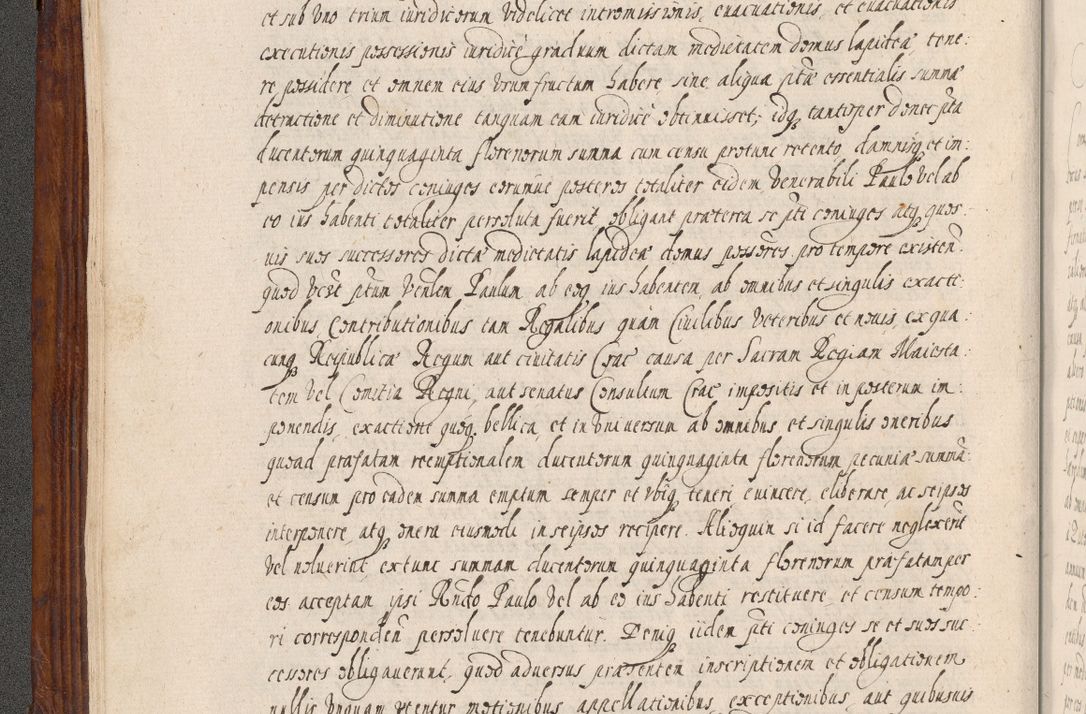 et sub uno trium iuridicorum videlicet intromissionis, evacuationis, et evacuationis
executionis possessionis iuridicè graduum dictam medietatem domus lapideæ tene:
re, possidere et omnem eius usumfructum habere sine aliqua ptæ essentialis summæ
detractione et diminutione tanquam eam iuridicè obtinuisset, idq tantisper donec pta
ducentorum quinquaginta florenorum summa cum censu protunc retento, damnisq et im:
pensis per dictos coniuges eorumve posteros totaliter eidem Venerabili Paulo vel ab
eo ius habenti totaliter persoluta fuerit. obligant præterea se pti coniuges atq quos
vis suos successores dictæ medietatis lapideæ domus possores pro tempore existen:
quod vovt ptum Venlem Paulum ab eoq ius habentem ab omnibus et singulis exacti:
onibus, Contributionibus tam Regalibus quàm Civilibus veteribus et novis, ex qua:
cunq Reipublicæ Regum aut civitatis Crac causa per Sacram Regiam Maiesta:
tem vel Comitia Regni, aut senatus Consultum Crac impositis et in posterum im:
ponendis, exactione quoq bellica, et in universum ab omnibus et singulis oneribus
quoad præfatam reemptionalem ducentorum quinquaginta florenorum pecuniæ summã:
et censum pro eadem summa emptum semper et ubiq teneri evincere, eliberare, ac seipsos
interponere, atq onera eiusmodi in seipsos recipere. Alioquin si id facere neglexerit
vel noluerint, extunc summam ducentorum quinquaginta florenorum præfatam per
eos acceptam ipsi Rndo Paulo vel ab eo ius habenti restituere, et censum tempo:
ri corresponden persolvere tenebuntur. Deniq iidem pti coniuges se et suos suc:
cessores obligaverunt, quod adversus præsentem inscriptionem et obligationem
nullis unquam utentur motionibus, appellationibus, exceptionibus, aut quibusvis